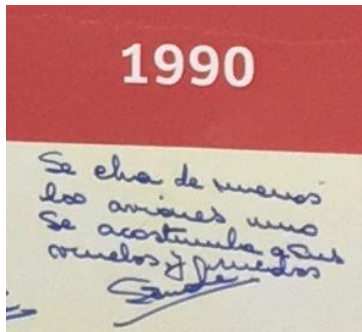 1990
Se echa de menos
los aviones uno
Se acostumbra a sus
vuelos y